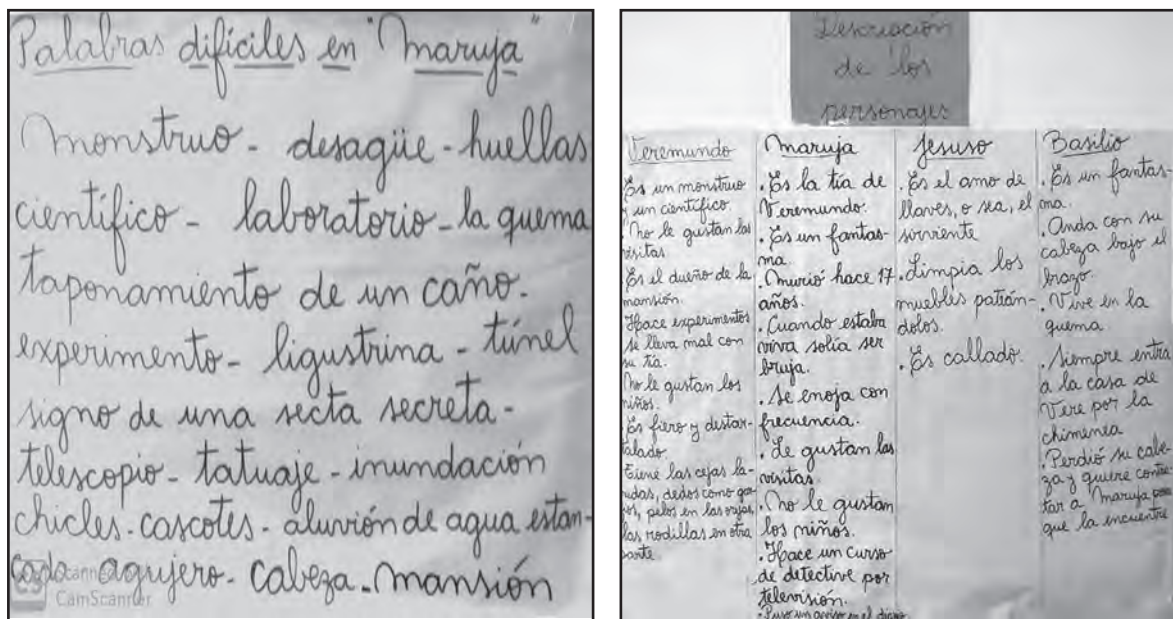 Palabras difíciles en "Maruja"
Monstruo - desagüe - huellas
científico - laboratorio - la quema
taponamiento de un caño.
experimento - ligustrina - túnel
signo de una secta secreta -
telescopio - tatuaje - inundación
chicles - cascotes - aluvión de agua estan-
cada agujero - cabeza - mansión
CamScanner
Descripción
de los
personajes
Veremundo
Es un monstruo
y un científico.
No le gustan las
visitas
Es el dueño de la
mansión.
Hace experimentos
se lleva mal con
su tía.
No le gustan los
niños.
Es fiero y destar-
talado.
Tiene las cejas la-
dedos como
pelos en las orejas,
las rodillas en otra
parte.
Maruja
. Es la tía de
Veremundo.
. Es un fantas-
ma.
. Murió hace 17
años.
. Cuando estaba
viva solía ser
bruja.
. Se enoja con
frecuencia.
. Le gustan las
visitas.
. No le gustan
los niños.
. Hace un curso
de detective por
televisión.
. Puso un aviso en el diario
Jesuso
. Es el amo de
llaves, o sea, el
sirviente
. Limpia los
muebles patián-
dolos.
. Es callado.
Basilio
. Es un fantas-
ma.
. Anda con su
cabeza bajo el
brazo.
. Vive en la
quema.
. Siempre entra
a la casa de
Vere por la
chimenea
. Perdió su cabe-
za y quiere contra
tar a Maruja para
que la encuentre